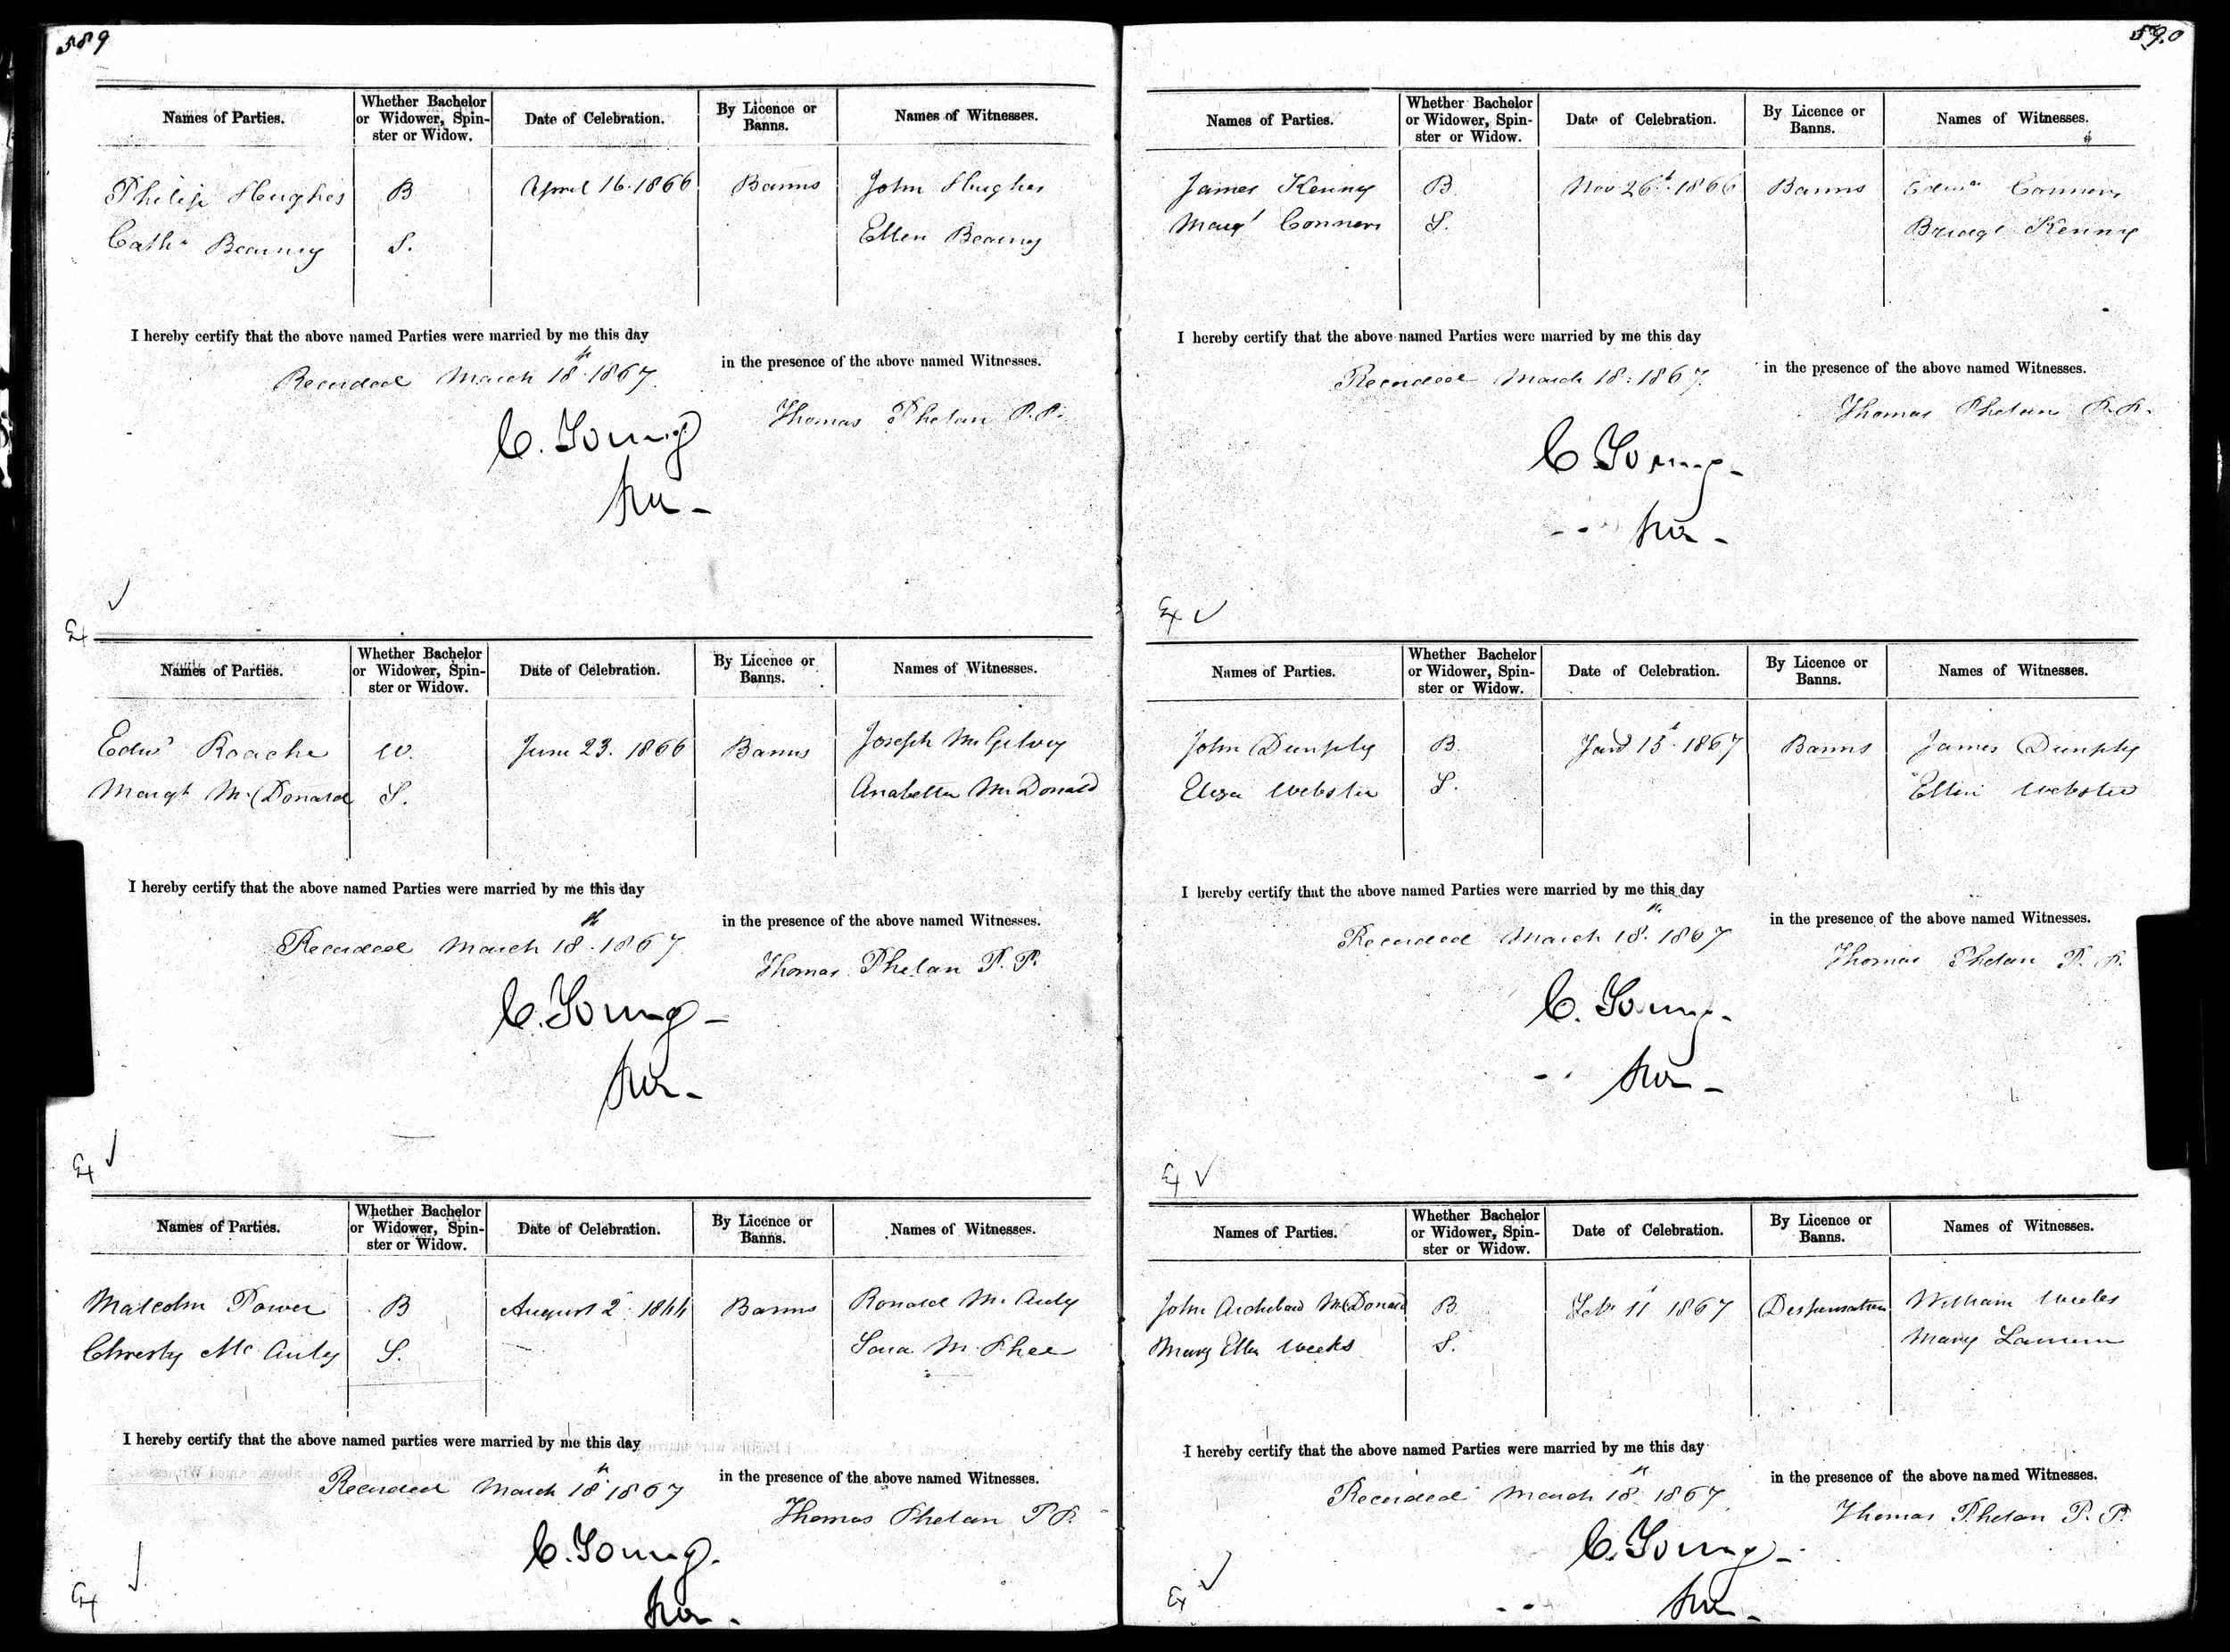 589
Names of Parties. Whether Bachelor or Widower, Spin-ster or Widow. Date of Celebration. By Licence or Banns. Names of Witnesses.
Philip Hughes B April 16. 1866 Banns John Hughes
Cath. S. Ellen
I hereby certify that the above named Parties were married by me this day
Recorded March 18th 1867. in the presence of the above named Witnesses.
Thomas Phelan P.P.
C. Young
Ex
Names of Parties. Whether Bachelor or Widower, Spin-ster or Widow. Date of Celebration. By Licence or Banns. Names of Witnesses.
Edwd Roache W. June 23. 1866 Banns Joseph McGilvey
Margt McDonald S. Anabella McDonald
I hereby certify that the above named Parties were married by me this day
Recorded March 18th 1867 in the presence of the above named Witnesses.
Thomas Phelan P.P.
C. Young
Ex
Names of Parties. Whether Bachelor or Widower, Spin-ster or Widow. Date of Celebration. By Licence or Banns. Names of Witnesses.
Malcolm Power B August 2 Banns Ronald McAuly
Christy McAuly S. McPhee
I hereby certify that the above named parties were married by me this day
Recorded March 18th 1867 in the presence of the above named Witnesses.
Thomas Phelan P.P.
C. Young.
Ex
590
Names of Parties. Whether Bachelor or Widower, Spin-ster or Widow. Date of Celebration. By Licence or Banns. Names of Witnesses.
James Kenny B Nov 26t. 1866 Banns Connors
Margt Connors S. Bridgt Kenny
I hereby certify that the above named Parties were married by me this day
Recorded March 18: 1867. in the presence of the above named Witnesses.
Thomas Phelan P.P.
C Young
Ex
Names of Parties. Whether Bachelor or Widower, Spin-ster or Widow. Date of Celebration. By Licence or Banns. Names of Witnesses.
John Dunphy B. 15t. 1867 Banns James Dunphy
Eliza Webster S. Ellen Webster
I hereby certify that the above named Parties were married by me this day
Recorded March 18th 1867 in the presence of the above named Witnesses.
Thomas Phelan P.P.
C. Young
Ex
Names of Parties. Whether Bachelor or Widower, Spin-ster or Widow. Date of Celebration. By Licence or Banns. Names of Witnesses.
John Archibald McDonald B Feb 11 1867 Dispensation William Weeks
Mary Ellen Weeks S. Mary
I hereby certify that the above named Parties were married by me this day
Recorded March 18th 1867 in the presence of the above named Witnesses.
Thomas Phelan P.P.
C. Young
Ex